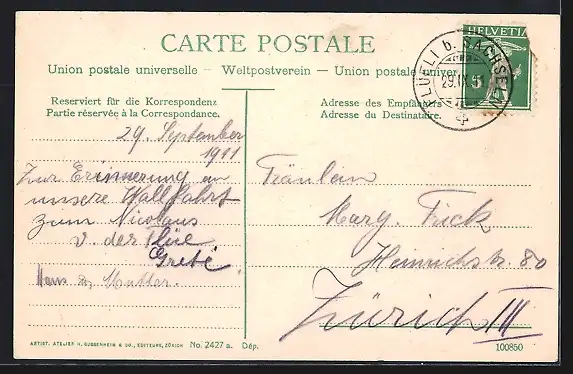 CARTE POSTALE
Union postale universelle – Weltpostverein – Union postale univer
Reserviert für die Korrespondenz
Partie réservée à la Correspondance.
Adresse des Empfängers
Adresse du Destinataire.
HELVETIA
FLÜELI b. SACHSELN
29.IX.11
29. September
1911
Zur Erinnerung an
unsere Wallfahrt
zum Nicolaus
v. der Flüe
Grete
Hans & Mutter.
Fräulein
Marg. Frick
Heinrichstr. 80
Zürich III
ARTIST. ATELIER H. GUGGENHEIM & CO., EDITEURS, ZÜRICH No. 2427 a. Dép.
100850